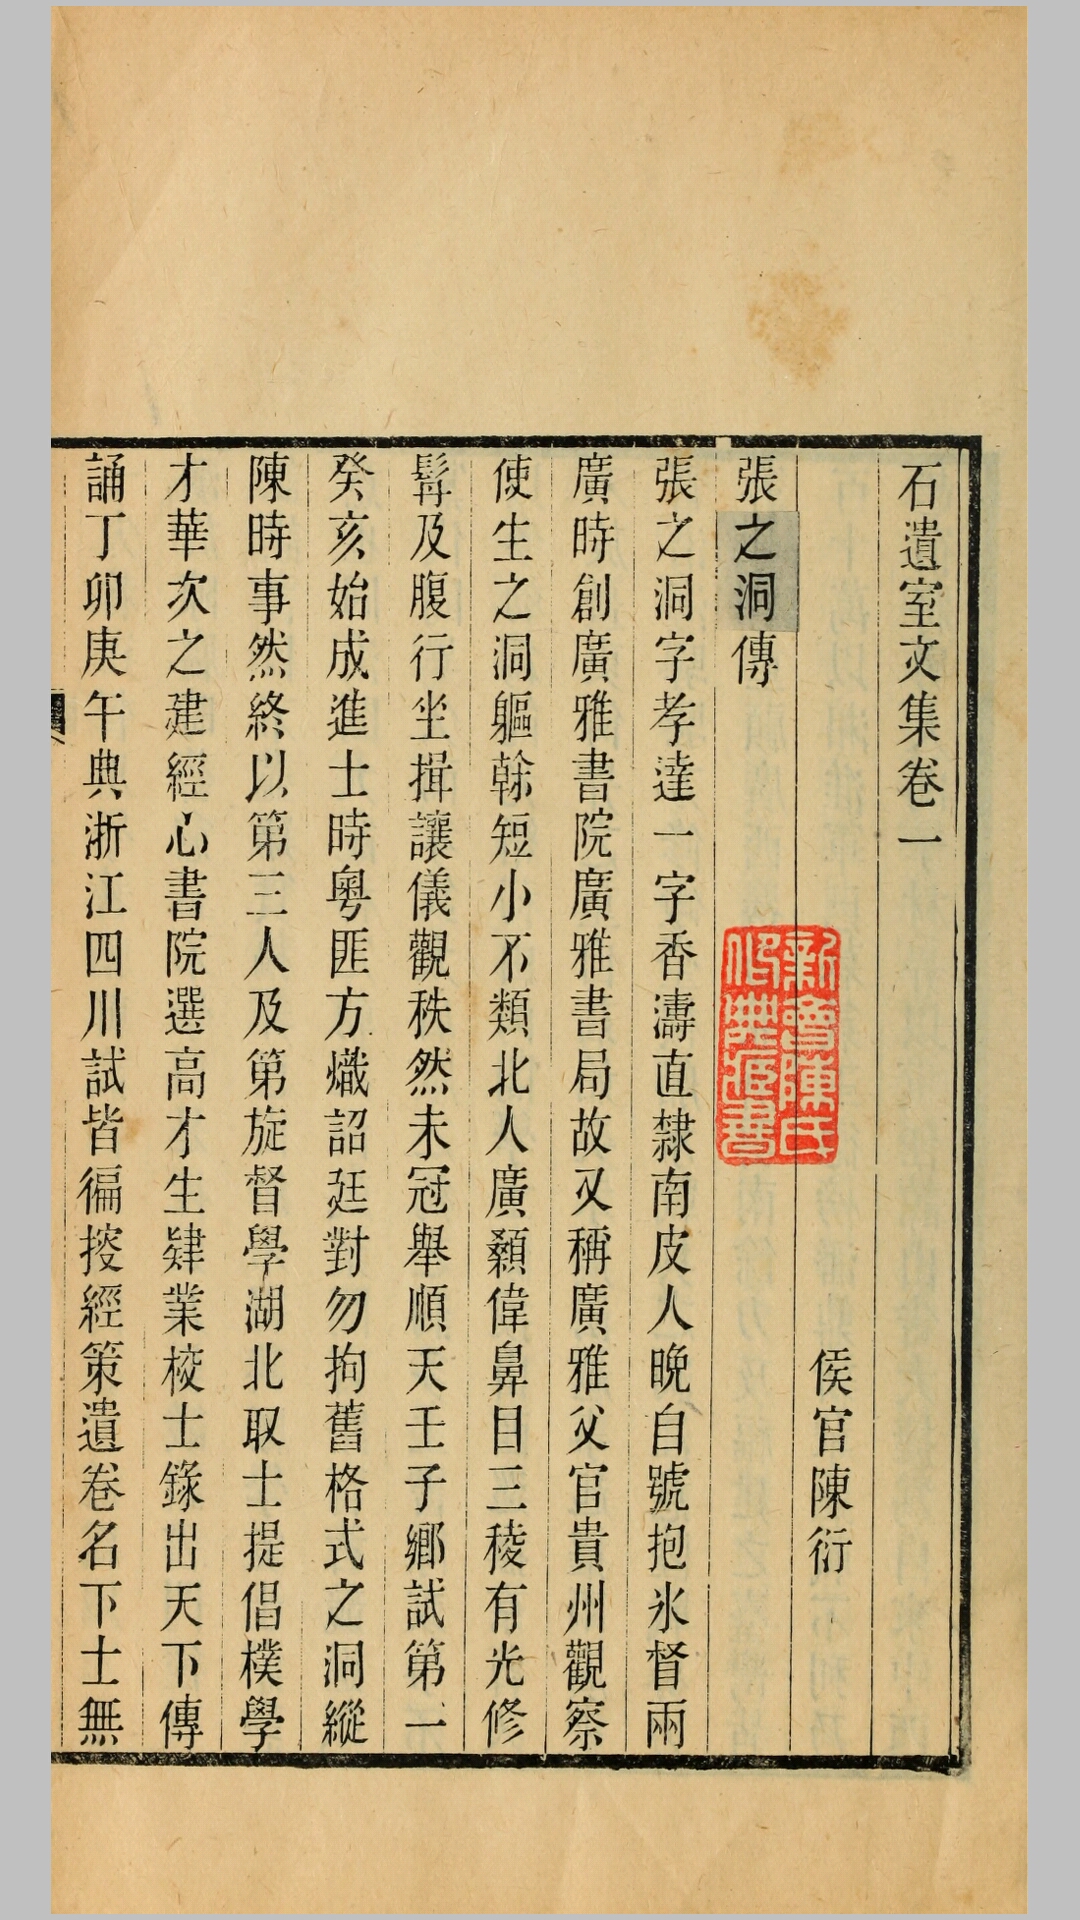 石遺室文集卷一
侯官陳衍
張之洞傳
張之洞字孝達一字香濤直隸南皮人晚自號抱氷督兩
廣時創廣雅書院廣雅書局故又稱廣雅父官貴州觀察
使生之洞軀榦短小不類北人廣顙偉鼻目三稜有光修
髯及腹行坐揖讓儀觀秩然未冠舉順天壬子鄉試第一
癸亥始成進士時粵匪方熾詔廷對勿拘舊格式之洞縱
陳時事然終以第三人及第旋督學湖北取士提倡樸學
才華次之建經心書院選高才生肄業校士錄出天下傳
誦丁卯庚午典浙江四川試皆徧挍經策遺卷名下士無
新會陳氏